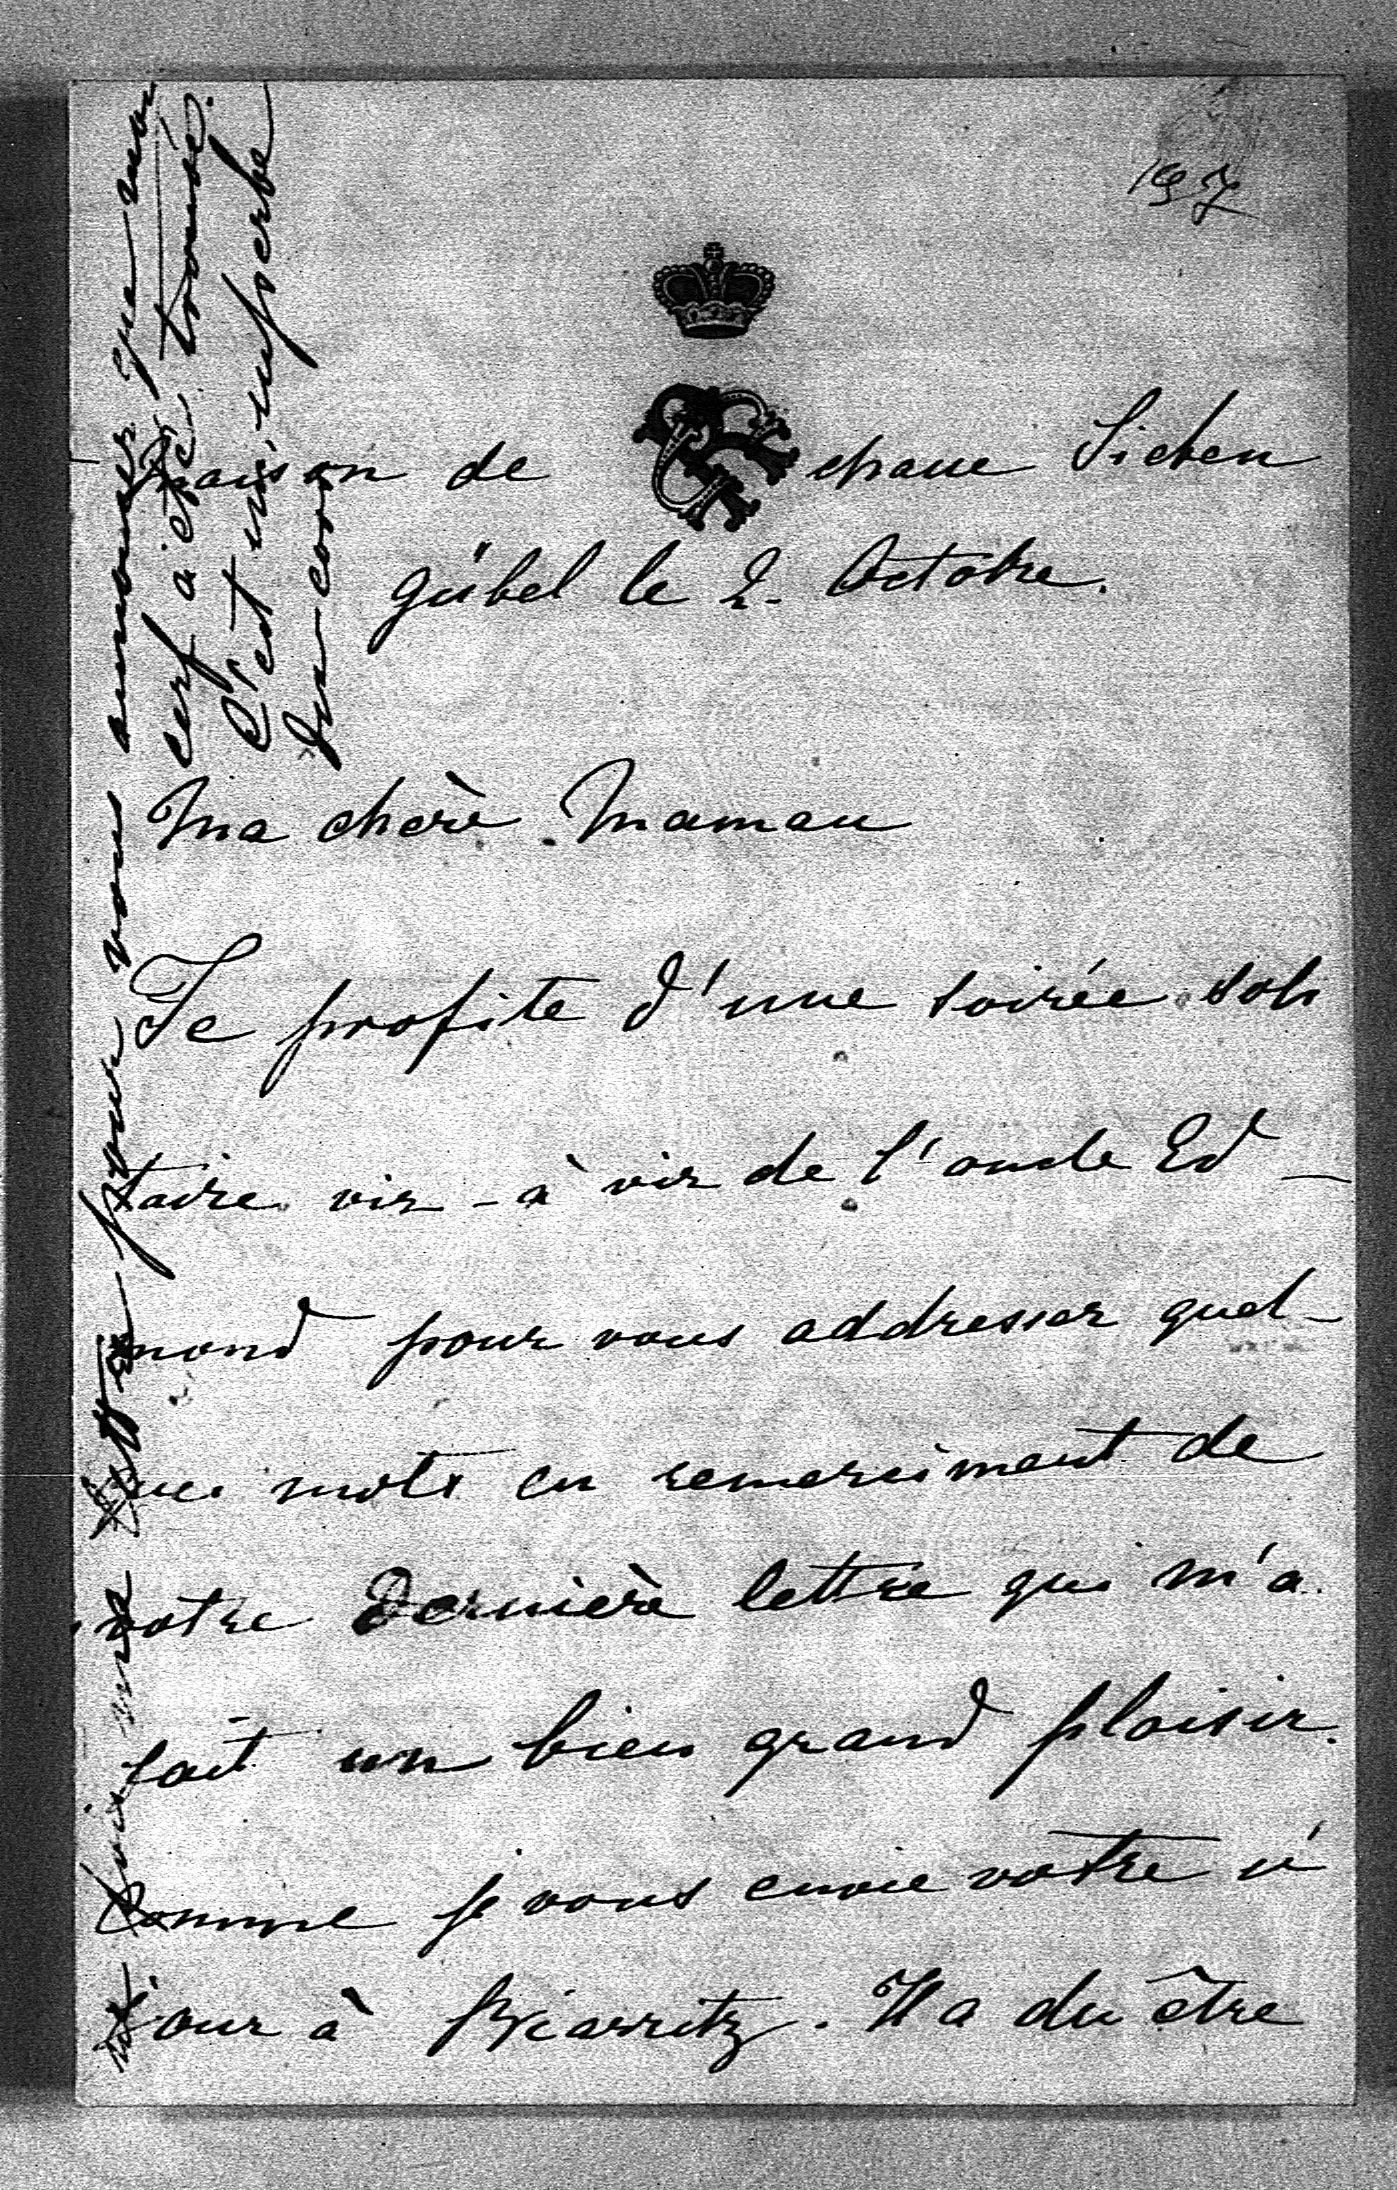 197
Maison de chasse Sieben
gübel le 2. Octobre.
Ma chère Maman
Je profite d'une soirée soli
taire vis-à vis de l'oncle Ed-
mond pour vous addresser quel-
ques mots en remerciment de
votre dernière lettre qui m'a
fait un bien grand plaisir.
Comme je vous envie votre sé
jour à Biarritz. Il a du être
lettre pour vous annoncer que mon
cerf a été trouvé.
C'est un superbe